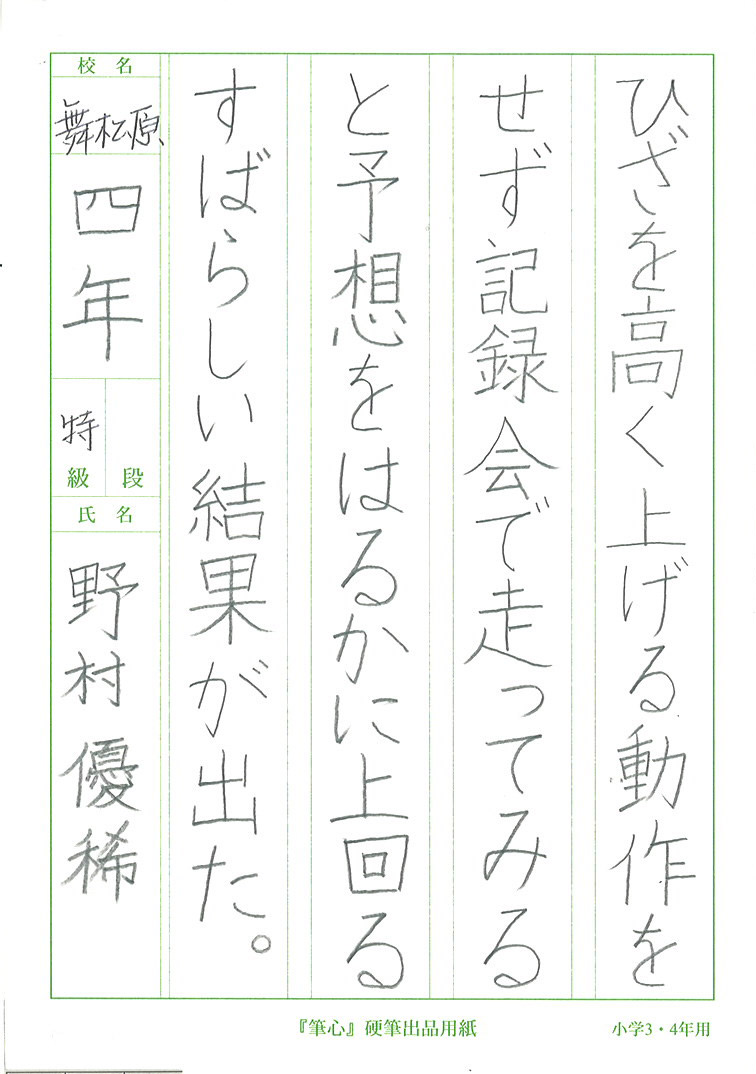 ひざを高く上げる動作を
せず記録会で走ってみる
と予想をはるかに上回る
すばらしい結果が出た。
校名
舞松原
四年
特
級 段
氏名
野村優稀
『筆心』硬筆出品用紙
小学3・4年用